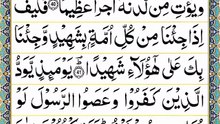 وَيُؤْتِ مِنْ لَّدُنْهُ اَجْرًا عَظِيْمًا ۝۴۰ فَكَيْفَ
اِذَا جِئْنَا مِنْ كُلِّ اُمَّةٍۭ بِشَهِيْدٍ وَّجِئْنَا
بِكَ عَلٰى هٰٓؤُلَآءِ شَهِيْدًا ۝۴۱ يَوْمَىِٕذٍ يَّوَدُّ
الَّذِيْنَ كَفَرُوْا وَعَصَوُا الرَّسُوْلَ لَوْ